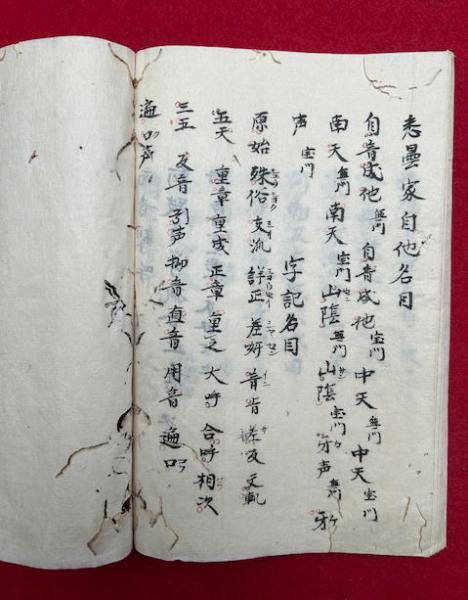 悉曇家自他名目
自音成他 無門 自音成他 宝門 中天 無門 中天 宝門
南天 無門 南天 宝門 山陰 無門 山陰 宝門 牙声 無門 牙
声 宝門 字記名目
原始 殊俗 支流 詳正 差舛 音旨 文軌
五天 重章 重成 正章 重之 大呼 合呼 相次
三五 反音 引声 抑音 直音 用音 遍口
遍口声